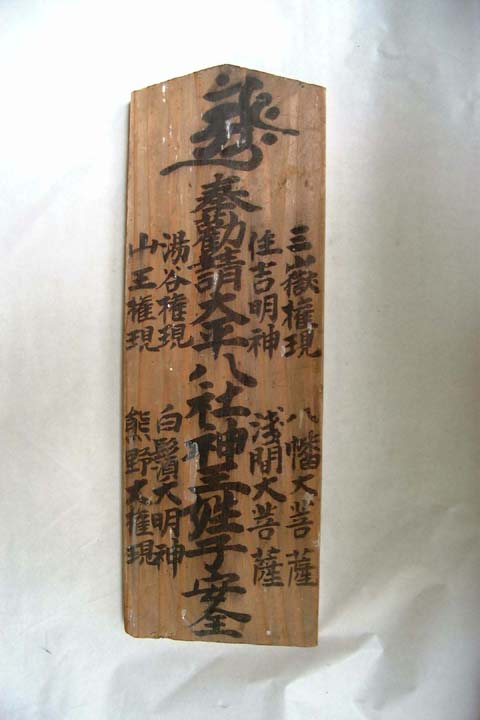 三嶽権現 八幡大菩薩
住吉明神 浅間大菩薩
奉勸請大平八社神主姓子安全
湯谷権現 白鬚大明神
山王権現 熊野大権現